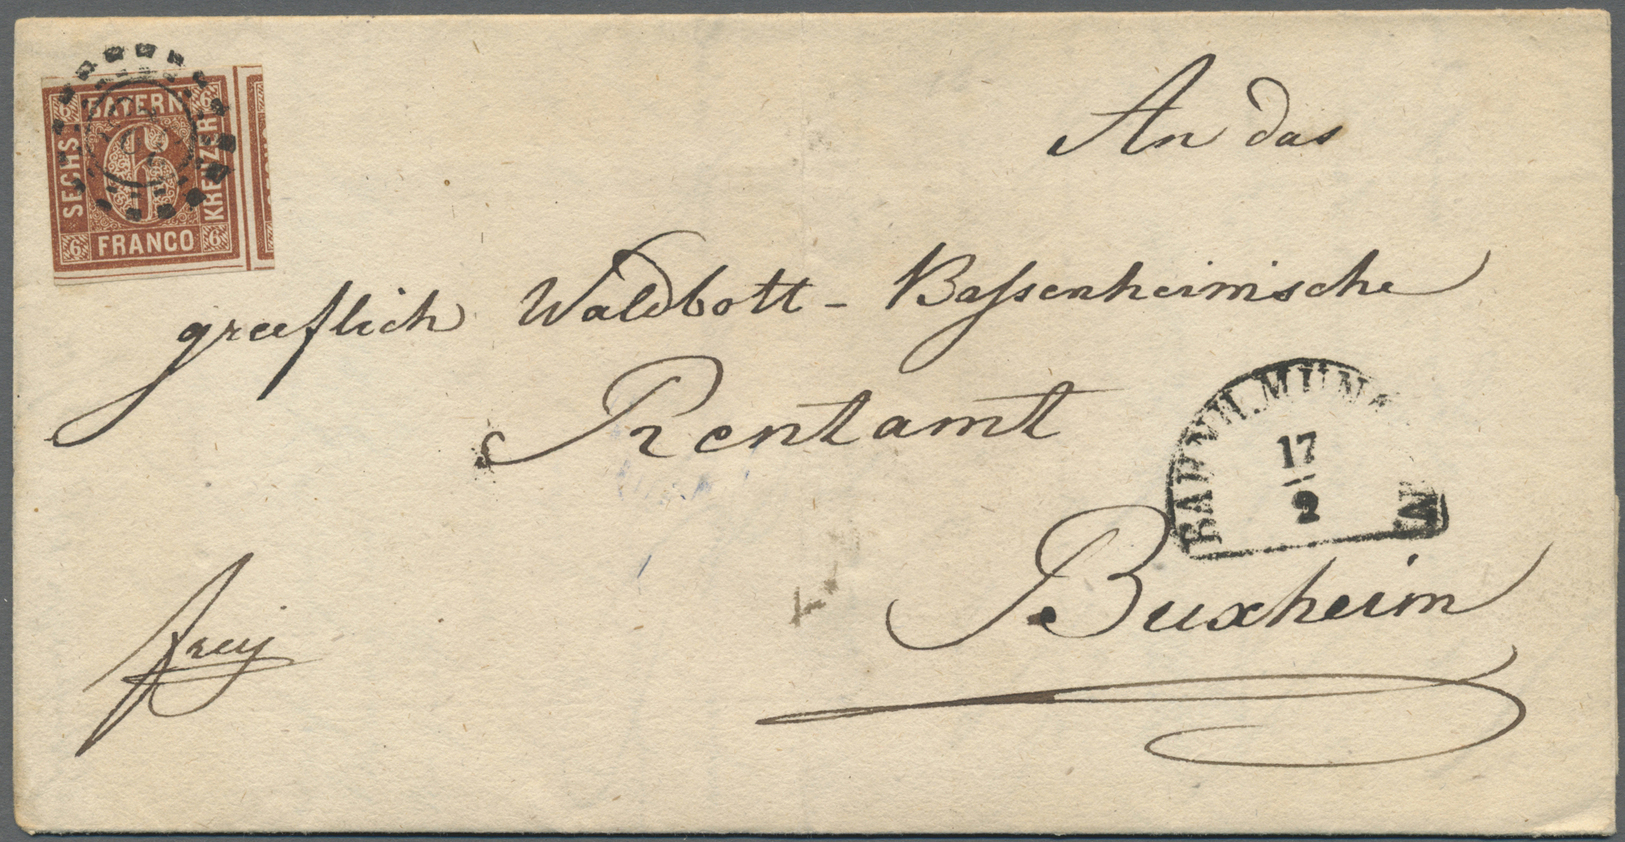 BAYERN
SECHS
KREUZER
FRANCO
6 6 6 6
6
An das
græflich Waldbott-Bassenheimische
Rentamt
BAHNH. MÜN
17
2
Buxheim
frey